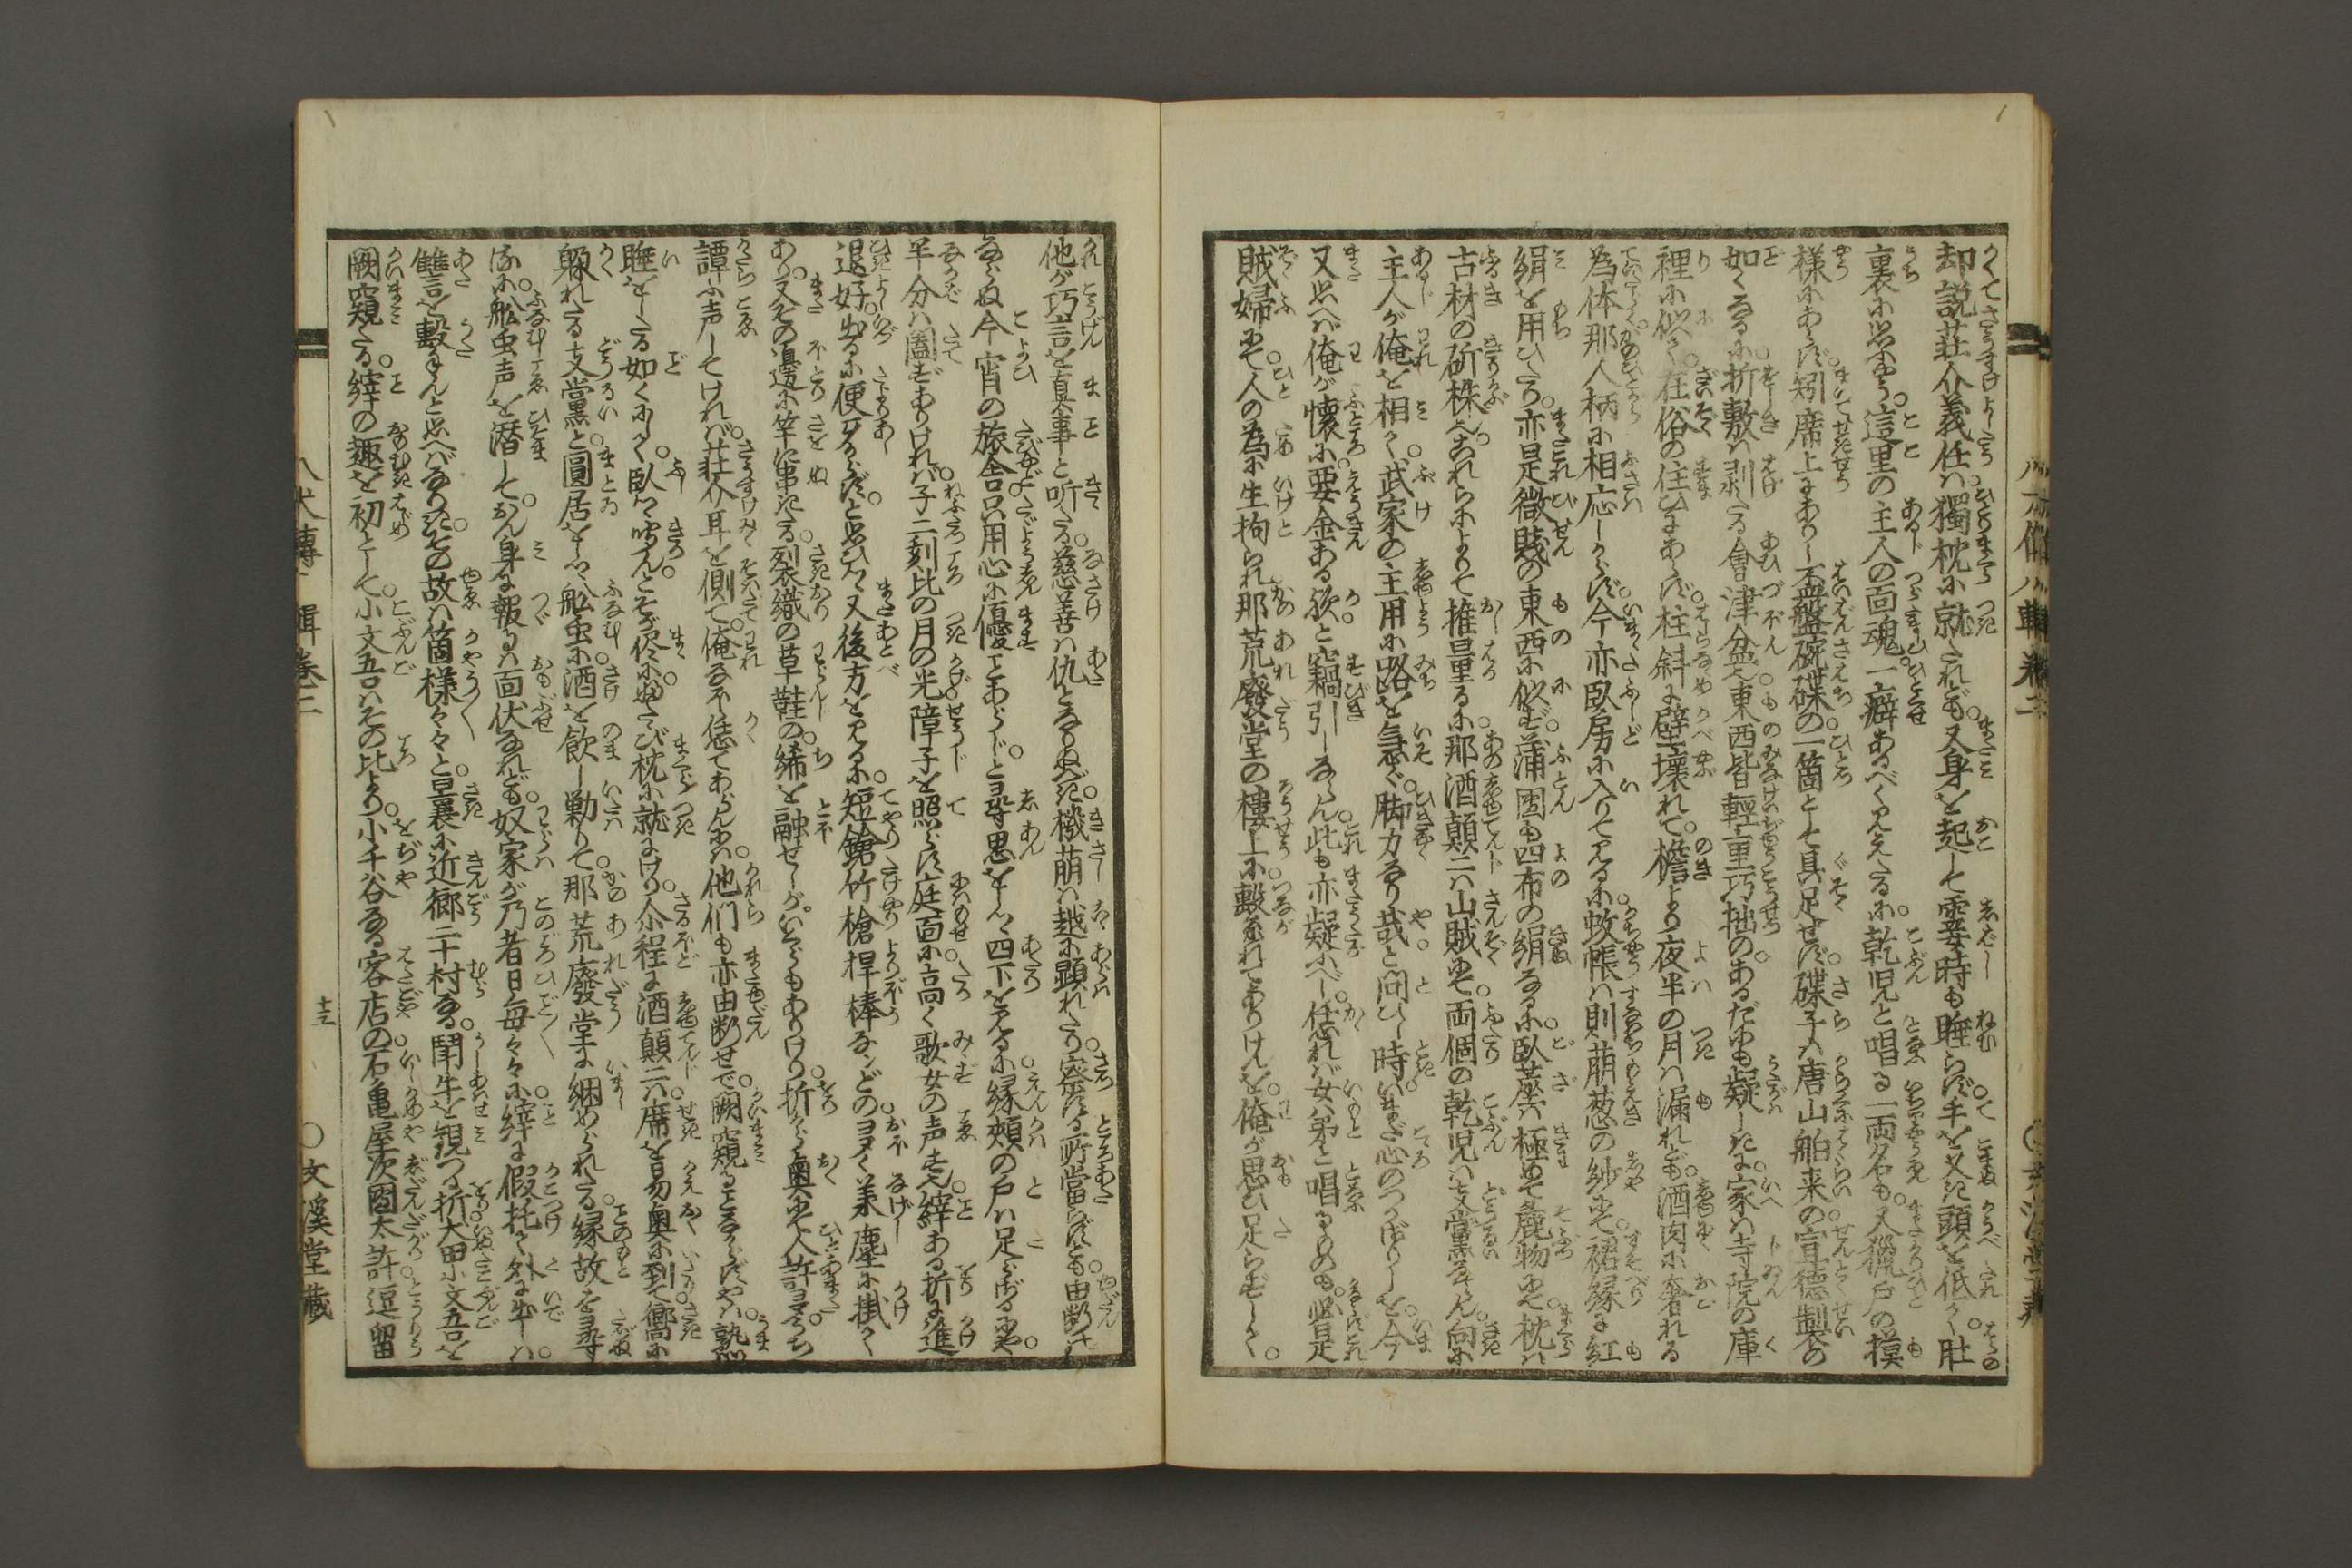 却説荘介義任は獨枕に就たれども。又身を起して霎時も睡らず手を叉き頭を低て。肚
裏に思ふやう。這里の主人の面魂。一癖あるべく見えたるに。乾児と唱る一両名も。又獵戸の摸
様にあらず。矧席上にありし盃盤碗碟の一箇として具足せず。碟子は唐山舶来の宣徳製の
如くなるに。折敷は剥たる會津盆也。東西皆輕重巧拙のあるだにも疑しきに。家は寺院の庫
裡に似て。在俗の住ひにあらず。柱斜に壁壊れて。檐より夜半の月は漏れども。酒肉に奢れる
為体那人柄に相応しからず。今亦臥房に入りて見るに。蚊帳は則萌葱の紗にて。裙縁に紅
絹を用ひたり。亦是微賤の東西に似ず。蒲團も四布の絹なるに。臥蓙は極めて麁物にて。枕は
古材の斫株也。これらによりて推量るに。那酒顛二は山賊にて。両個の乾児は支黨ならん。向に
主人が俺を相て。武家の主用に路を急ぐ。脚力なり哉と問ひし時。いまだ心のつかざりしを。今
又思へば俺が懐に。要金ある欤と竊引しならん。此も亦疑ふべし。恁れば女弟と唱るものも。必是
賊婦にて。人の為に生拘られ。那荒廢堂の樓上に。繋れてありけんを。俺が思ひ足らずして。
他が巧言を真事と听たる。慈善は仇となりぬべき。機萌は越に顕れたり。察する所當らずとも。由断す
ならぬ今宵の旅舎只用心に優ことあらじと。尋思をしつゝ四下を見るに。縁頬の戸は足らざるにや。
半分は闔ずありければ。子二刻比の月の光。障子を照らす庭面に。高く歌女の声す也。縡ある折は進
退好。出るに便りなからずと思ひつゝ又後方を見るに。短鎗竹槍桿棒なンどのヨヲく。美塵に掛て
あり。又その邊に竿に串きたる。裂織の草鞋の。絺を融せしが。いくらもありけり。折から奥にて人許多うち
譚ふ声してければ。荘介耳を側て。俺不恁てあらんには。他們も亦由断せで。闕窺ることなからずやは。熟
睡をしたる如くにして。臥つゝ听んとその侭に。ふたゝび枕に就にけり。介程に酒顛二は。席を易奥に到て。嚮に
躱れたる支黨と。圓居をしつゝ舩虫に。酒を飲し勦りて。那荒廢堂に綑められたる。縁故を尋
るに。舩虫声を潜して。おん身に報るは面伏なれども。奴家が乃者日毎々々に。縡に假托て外に出しは。
讐言を撃んと思へばなりき。その故は箇様々々と。曩に近郷二十村なる。闘牛を観つる折。犬田小文吾を
闕窺たる。縡の趣を初として。小文吾はその比より。小千谷なる客店の。石亀屋次團太許逗留
八犬傳八輯巻三
十三
○文溪堂藏